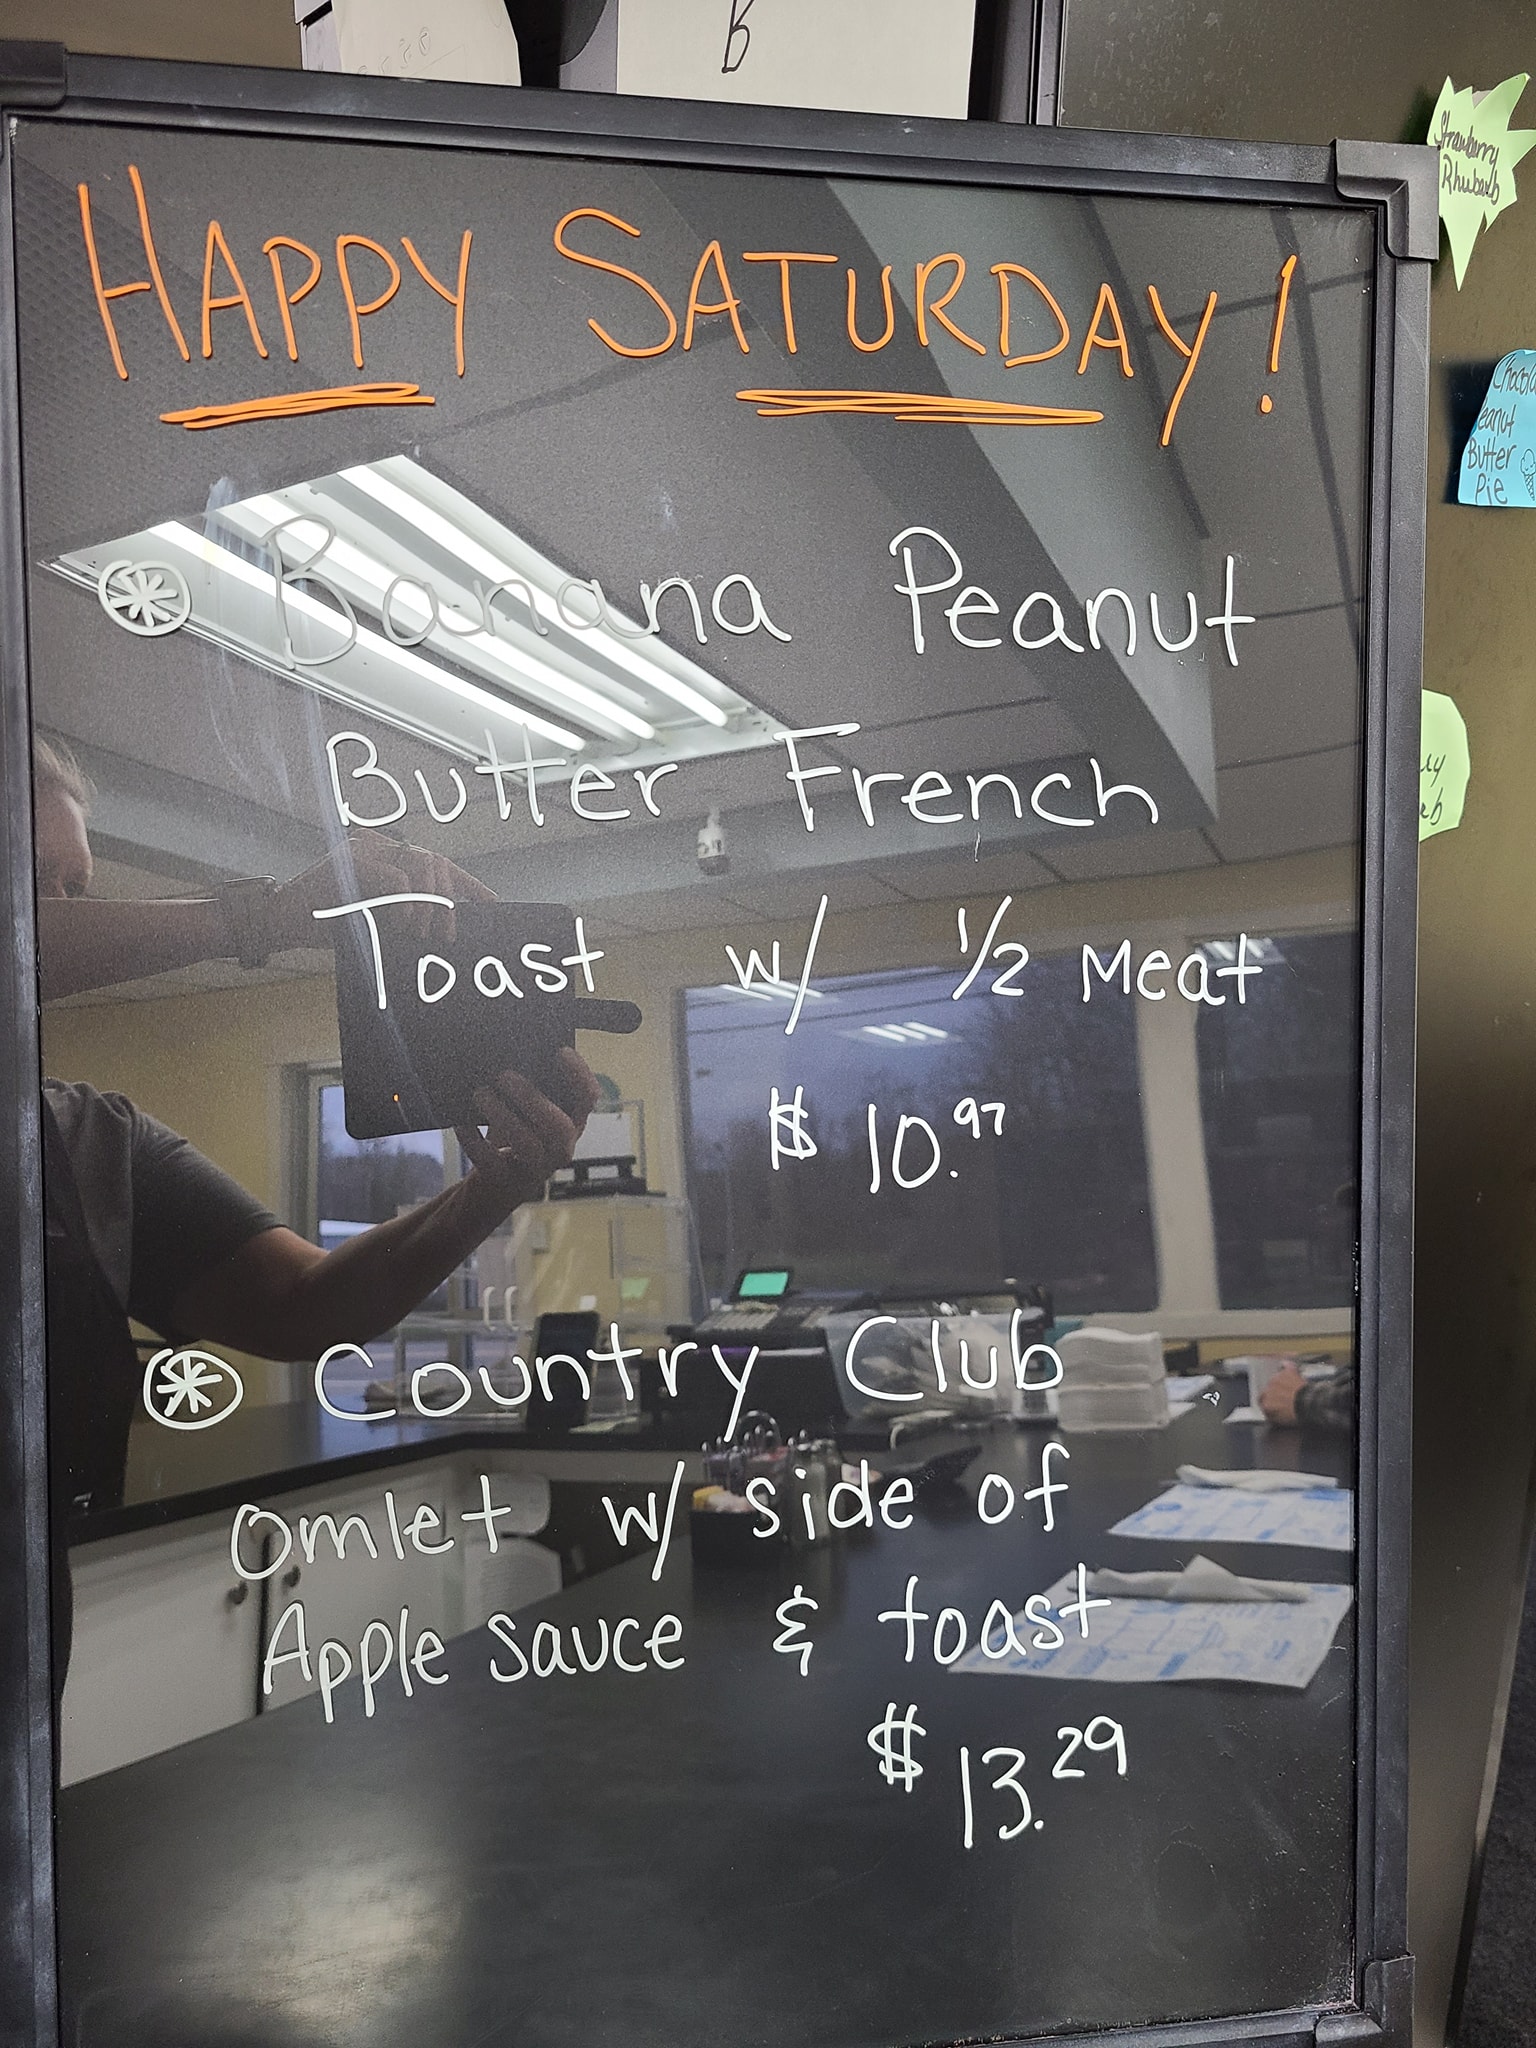 B
HAPPY SATURDAY!
Banana Peanut
Butter French
Toast w/ 1/2 Meat
$10.97
Country Club
Omlet w/ side of
Apple sauce & toast
$13.29
Strawberry
Rhubarb
Peanut
Butter
Pie